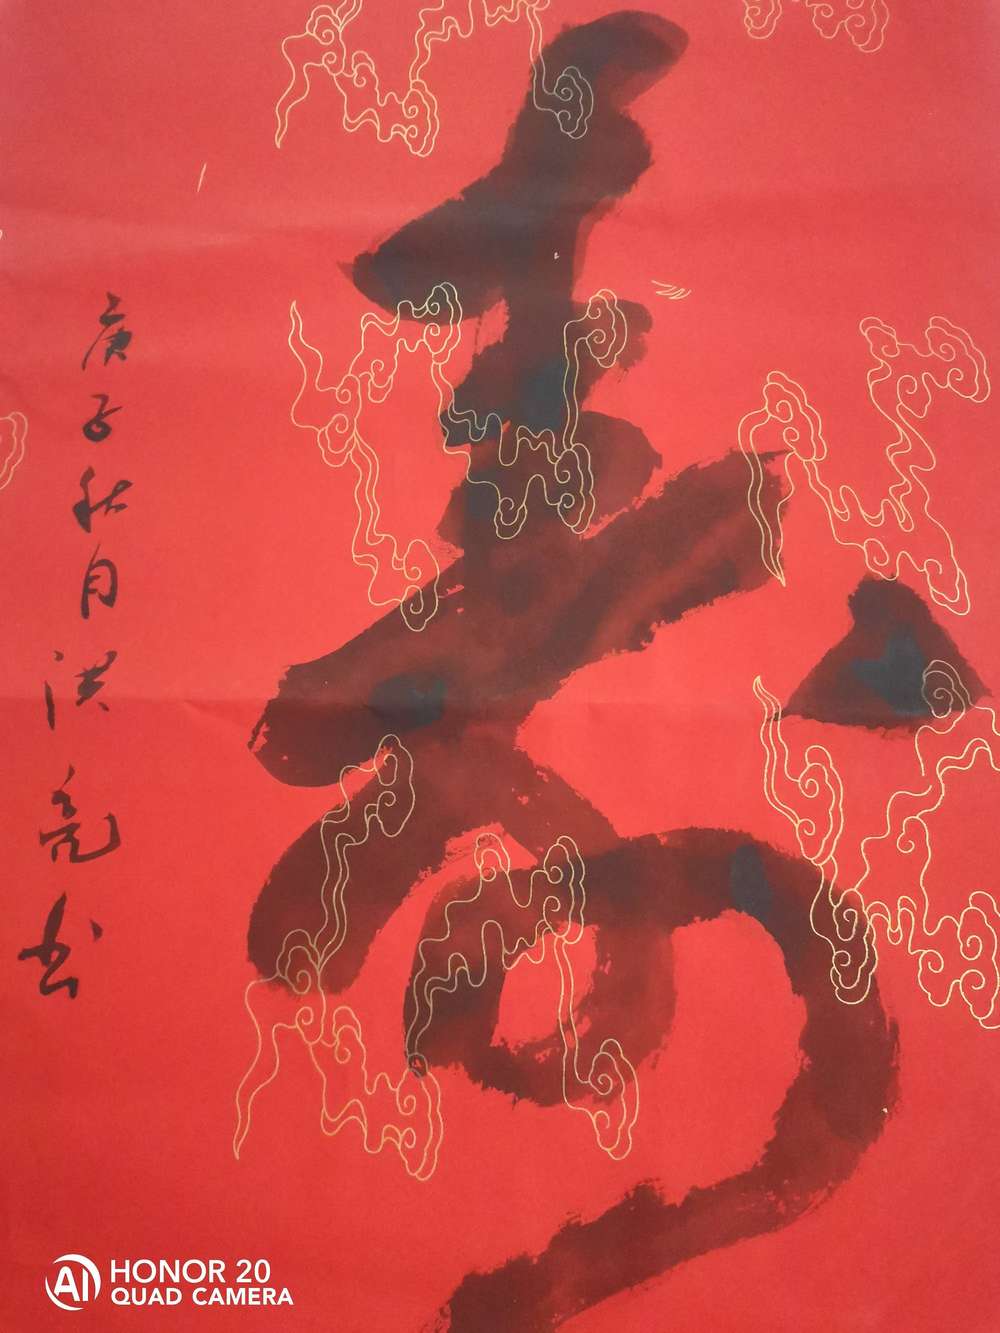 寿
庚子秋月洪亮书
HONOR 20
QUAD CAMERA
AI